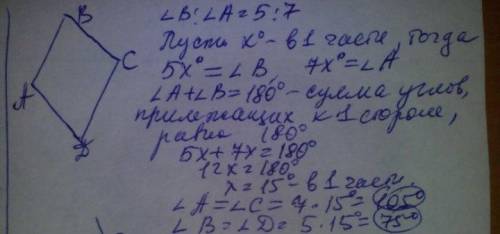 B
C
A
D
∠B:∠A=5:7
Пусть x°- в 1 части, тогда
5x°=∠B, 7x°=∠A
∠A+∠B=180°- сумма углов,
прилежащих к 1 стороне,
равна 180°
5x+7x=180°
12x=180°
x=15°- в 1 части
∠A=∠C=7·15°=105°
∠B=∠D=5·15°=75°